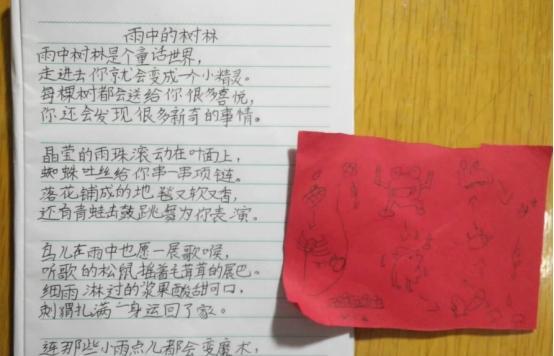 雨中的树林
雨中树林是个童话世界，
走进去你就会变成一个小精灵。
每棵树都会送给你很多喜悦，
你还会发现很多新奇的事情。
晶莹的雨珠滚动在叶面上，
蜘蛛吐丝给你串一串项链。
落花铺成的地毯又软又香，
还有青蛙击鼓跳舞为你表演。
鸟儿在雨中也愿一展歌喉，
听歌的松鼠摇着毛茸茸的尾巴。
细雨淋过的浆果酸甜可口，
刺猬扎满一身运回了家。
连那些小雨点儿都会变魔术，